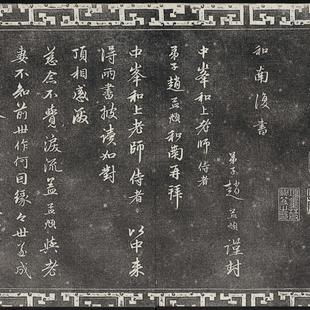 和南復書
弟子趙孟頫謹封
中峯和上老師侍者
弟子趙孟頫和南再拜
中峯和上老師侍者以中來
得兩書披讀如對
頂相感激
慈念不覺淚流蓋孟頫與老
妻不知前世作何因緣今世遂成